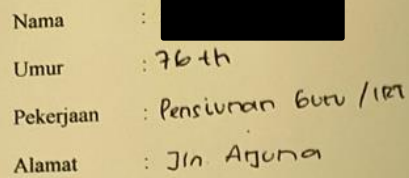 Nama :
Umur : 76 th
Pekerjaan : Pensiunan Guru / IRT
Alamat : Jln. Arjuna